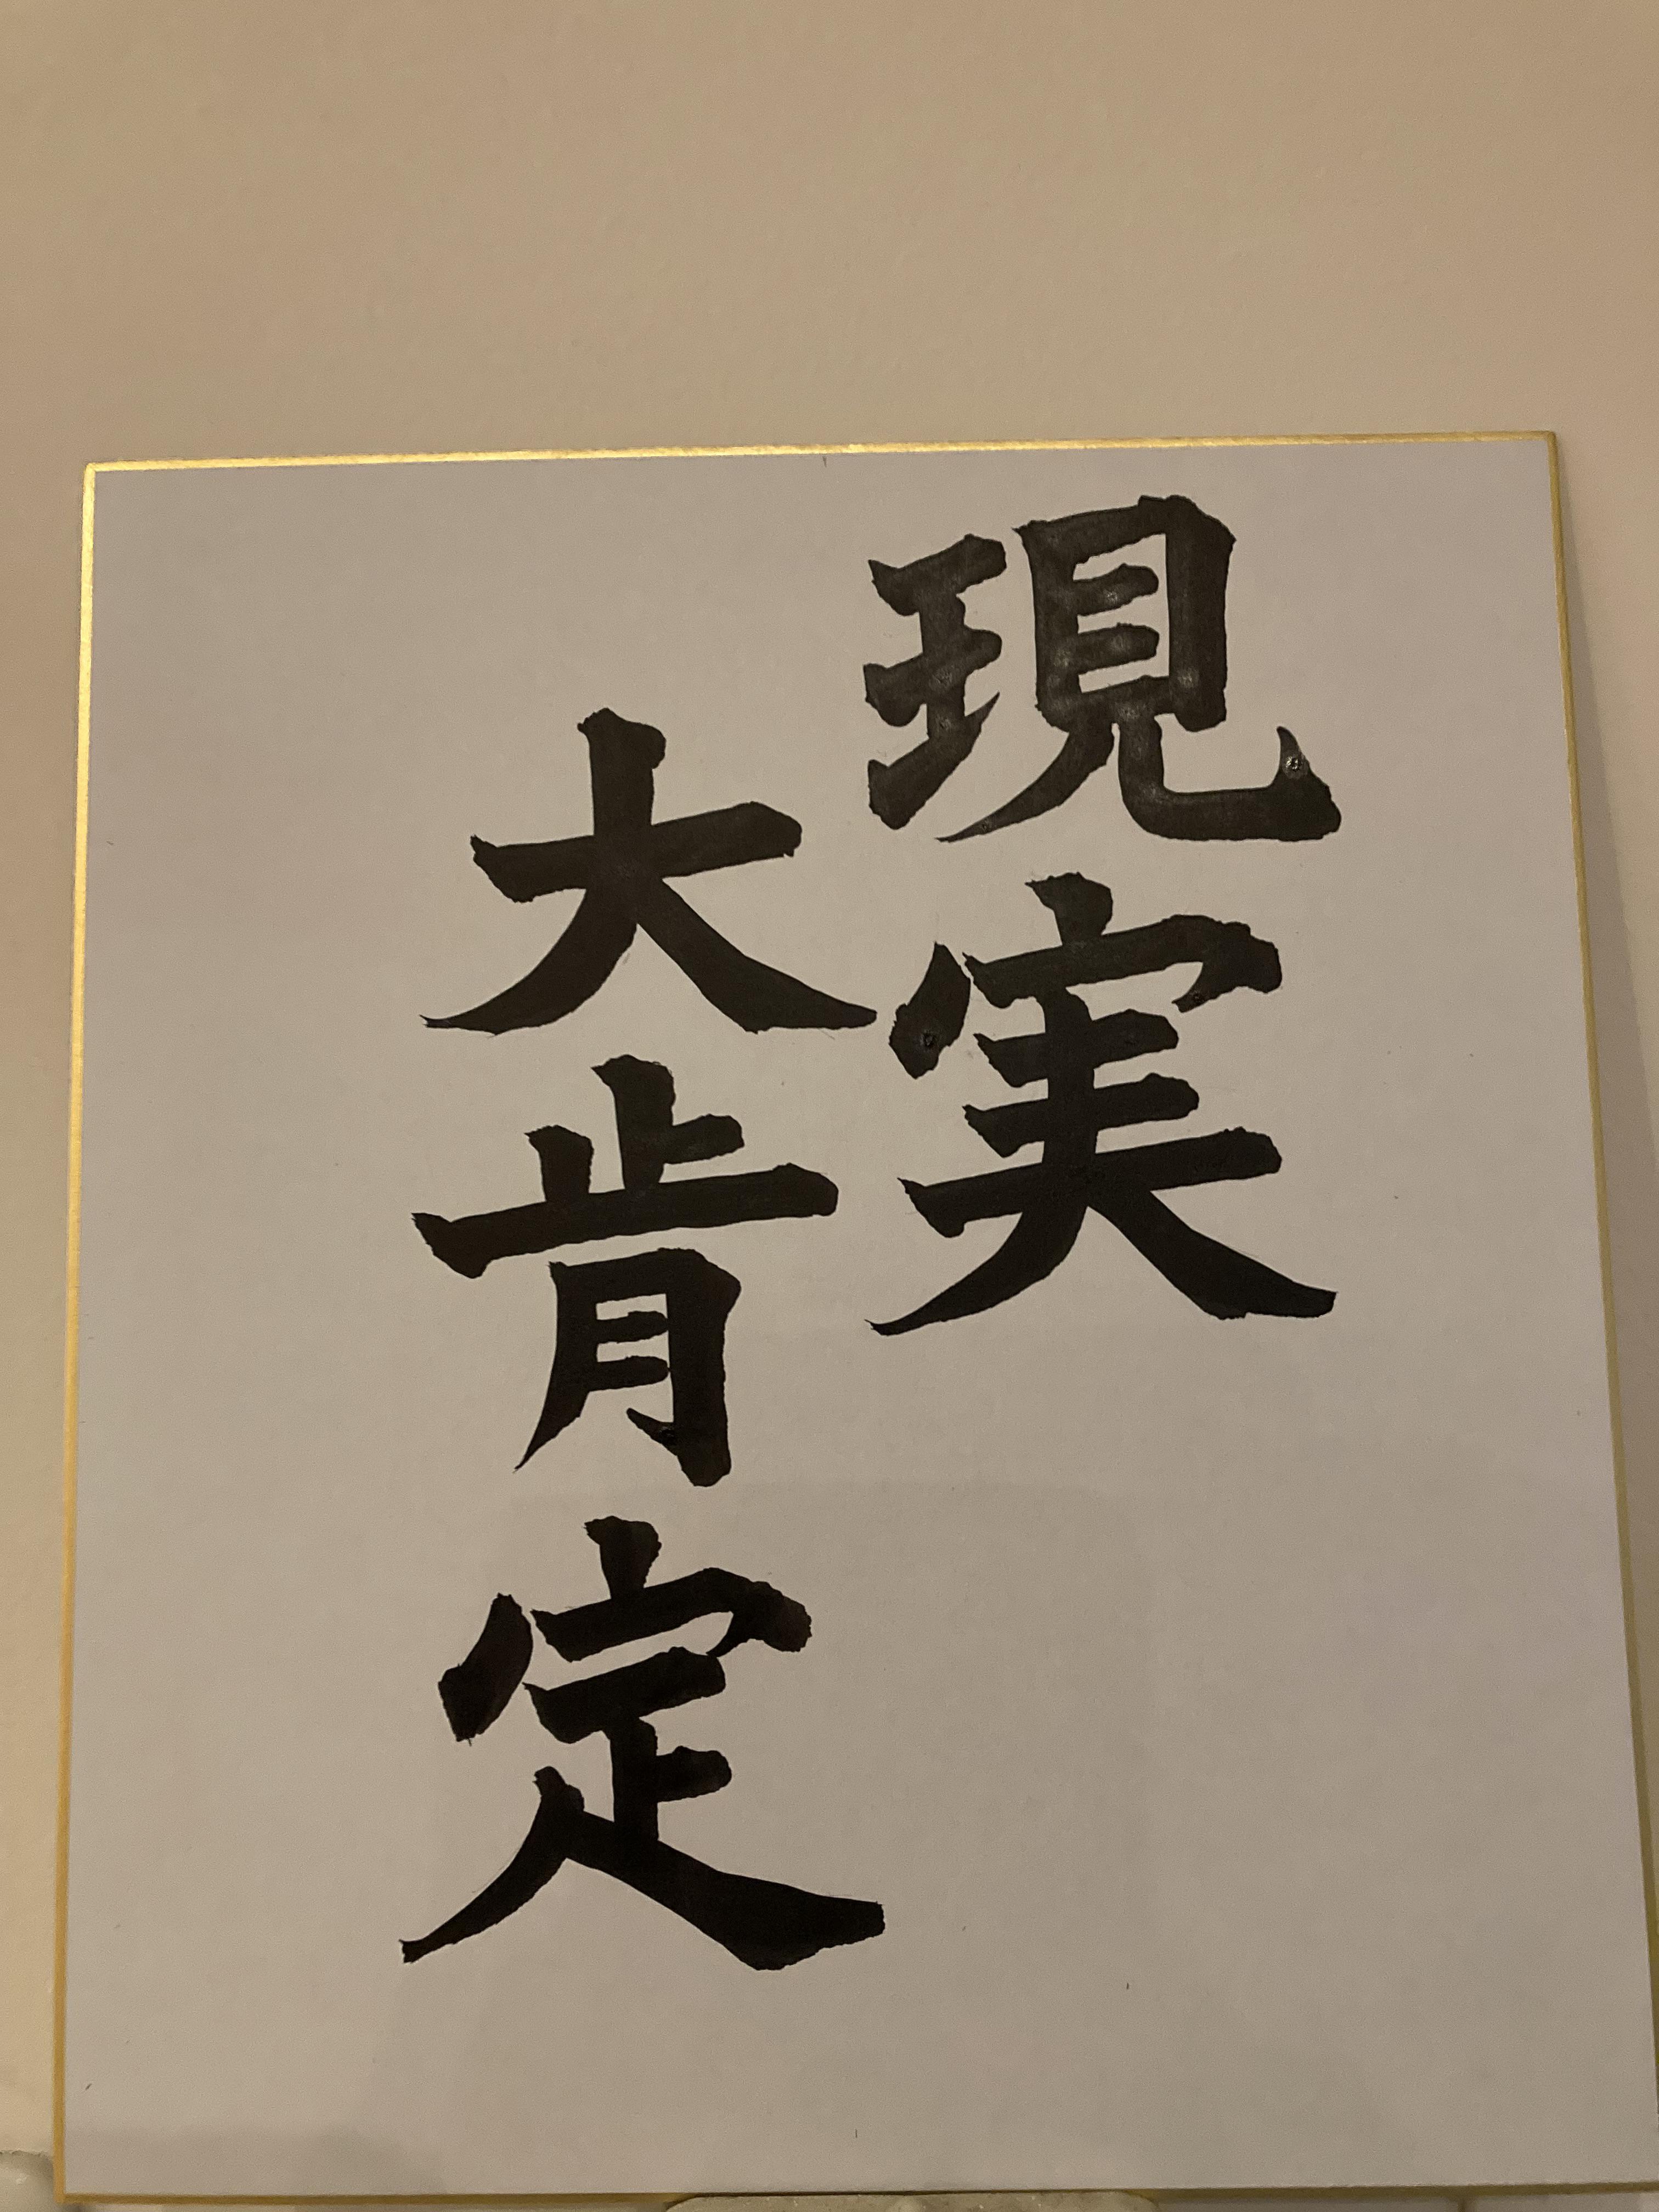 現実
大肯定